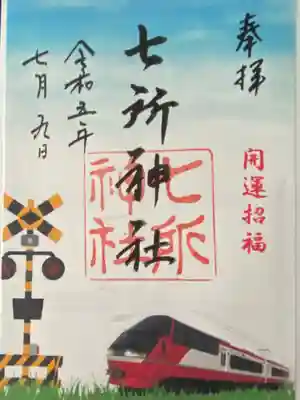 奉拝
開運招福
七所神社
七所
神社
令和五年
七月九日